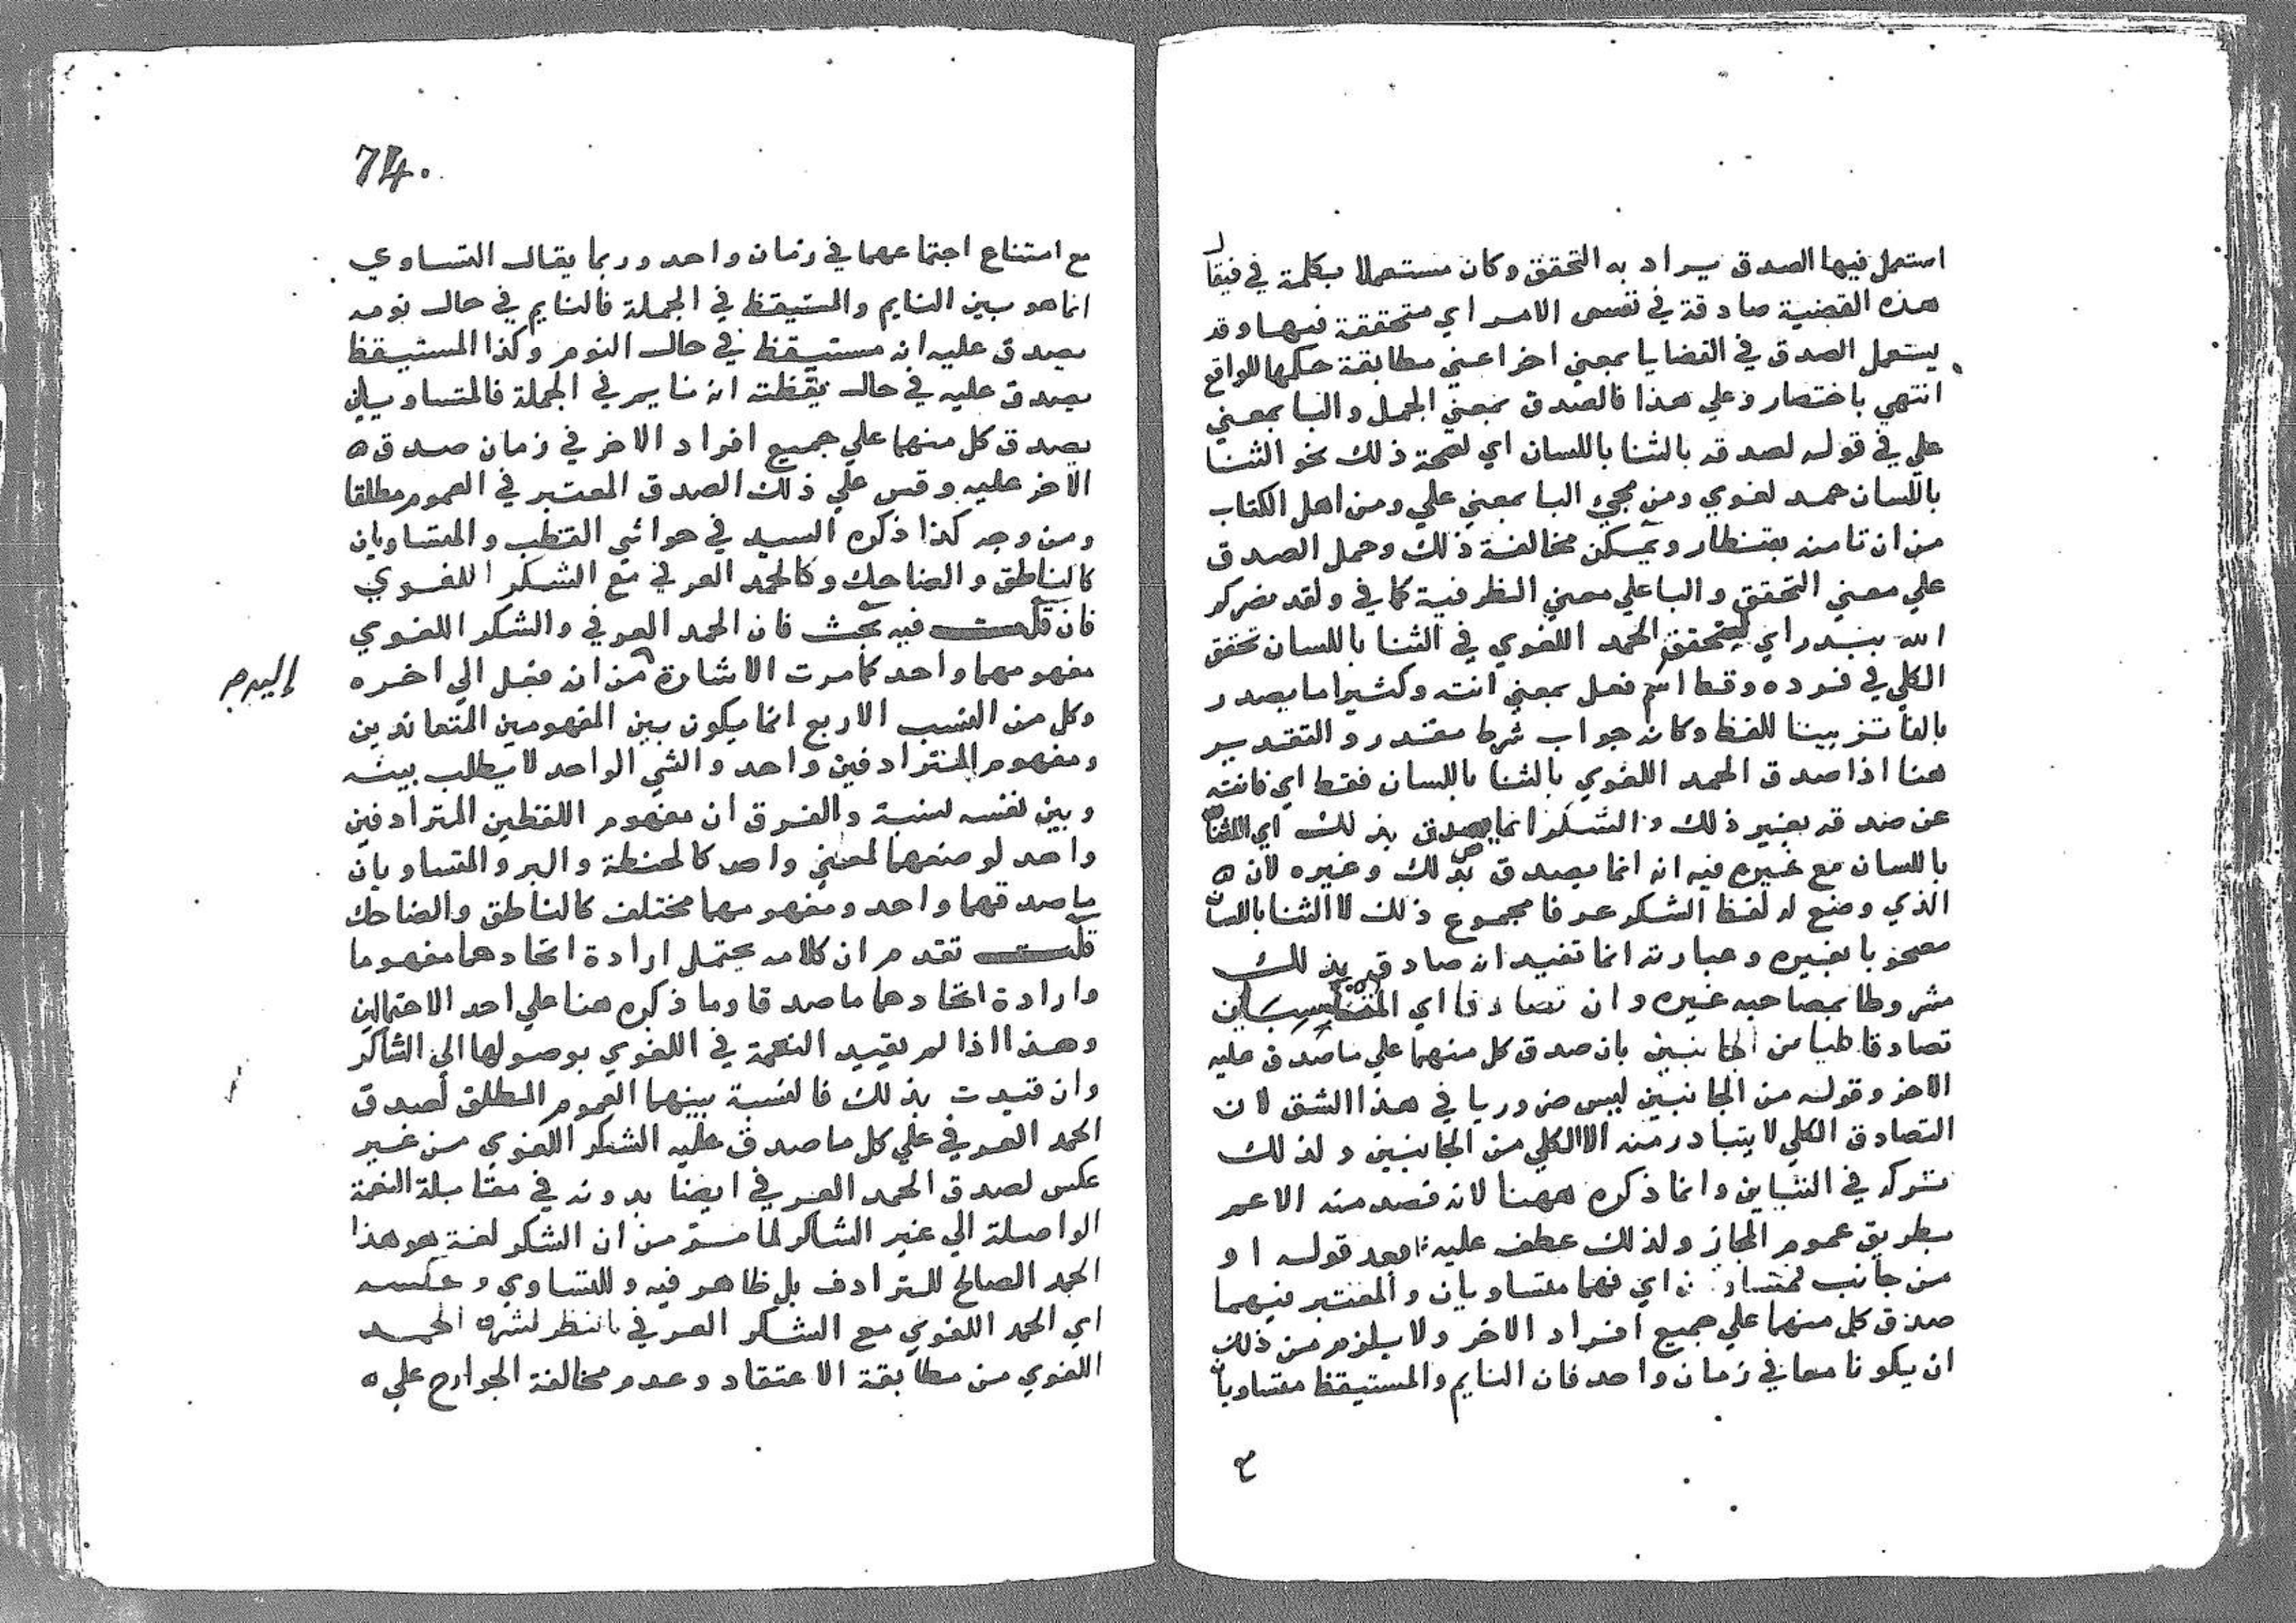 استعمل فيها الصدق يراد به التحقق وكان مستعملا بكلمة في فيقال
هذه القضية صادقة في نفس الامر اي متحققة فيها وقد
يستعمل الصدق في القضايا بمعني اخر اعني مطابقة حكمها للواقع
انتهي باختصار وعلي هذا فالصدق بمعني الحمل والبا بمعني
علي في قوله لصدقه بالثنا باللسان اي لصحة ذلك نحو الثنا
باللسان حمد لغوي ومن مجيء البا بمعني علي ومن اهل الكتاب
من ان تامنه بقنطار ويمكن مخالفة ذلك وحمل الصدق
علي معني التحقق والبا علي معني الظرفية كما في ولقد نصركم
الله ببدر اي ليتحقق الحمد اللغوي في الثنا باللسان تحقق
الكلي في فرده وقط اسم فعل بمعني انته وكثيرا ما يصدر
بالفا تزيينا للفظ وكانه جواب شرط مقدر والتقدير
هنا اذا صدق الحمد اللغوي بالثنا باللسان فقط اي فانته
عن صدقه بغير ذلك والشكر انما يصدق بذلك اي الثنا
باللسان مع غيره فيه انه انما يصدق بذلك وغيره لان
الذي وضع له لفظ الشكر عرفا مجموع ذلك لا الثنا باللسان
مصحوبا بغيره وعبارته انما تفيد انه صادق بذلك
مشروطا بمصاحبه غيره وان تصادقا اي المنتسبين
تصادقا كليا من الجانبين بان صدق كل منهما علي ما صدق عليه
الاخر وقوله من الجانبين ليس ضروريا في هذا الشق لان
التصادق الكلي لا يتبادر منه الا الكلي من الجانبين ولذلك
تركه في التباين وانما ذكره ههنا لانه قصد منه الاعم
بطريق عموم المجاز ولذلك عطف عليه بعد قوله او
من جانب فمتساويان اي فهما متساويان والمعتبر فيهما
صدق كل منهما علي جميع افراد الاخر ولا يلزم من ذلك
ان يكونا معا في زمان واحد فان النايم والمستيقظ متساويان
مع امتناع اجتماعهما في زمان واحد وربما يقال التساوي
انما هو بين النايم والمستيقظ في الجملة فالنايم في حال نومه
يصدق عليه انه مستيقظ في حال النوم وكذا المستيقظ
يصدق عليه في حال يقظته انه نايم في الجملة فالمتساويان
يصدق كل منهما علي جميع افراد الاخر في زمان صدق
الاخر عليه وقس علي ذلك الصدق المعتبر في العموم مطلقا
ومن وجه كذا ذكره السيد في حواشي القطب والمتساويان
كالناطق والضاحك وكالحمد العرفي مع الشكر اللغوي
فان قلت فيه بحث فان الحمد العرفي والشكر اللغوي
مفهومهما واحد كما مرت الاشارة من انه فعل الي اخره
إليه م
وكل من النسب الاربع انما يكون بين المفهومين المتعاندين
ومفهوم المترادفين واحد والشي الواحد لا يطلب بينه
وبين نفسه نسبة والفرق ان مفهوم اللفظين المترادفين
واحد لوضعهما لمعني واحد كالحنطة والبر والمتساويان
ما صدقهما واحد ومفهومهما مختلف كالناطق والضاحك
قلت تقدم ان كلامه يحتمل ارادة اتحادهما مفهوما
وارادة اتحادهما ما صدقا وما ذكره هنا علي احد الاحتمالين
وهذا اذا لم يقيد النعمة في اللغوي بوصولها الي الشاكر
وان قيدت بذلك فالنسبة بينهما العموم المطلق لصدق
الحمد العرفي علي كل ما صدق عليه الشكر اللغوي من غير
عكس لصدق الحمد العرفي ايضا بدونه في مقابلة النعمة
الواصلة الي غير الشاكر لما مر من ان الشكر لغة هو هذا
الحمد الصالح للترادف بل ظاهر فيه وللتساوي وعكسه
اي الحمد اللغوي مع الشكر العرفي بالنظر لشرط الحمد
اللغوي من مطابقة الاعتقاد وعدم مخالفة الجوارح علي
74.